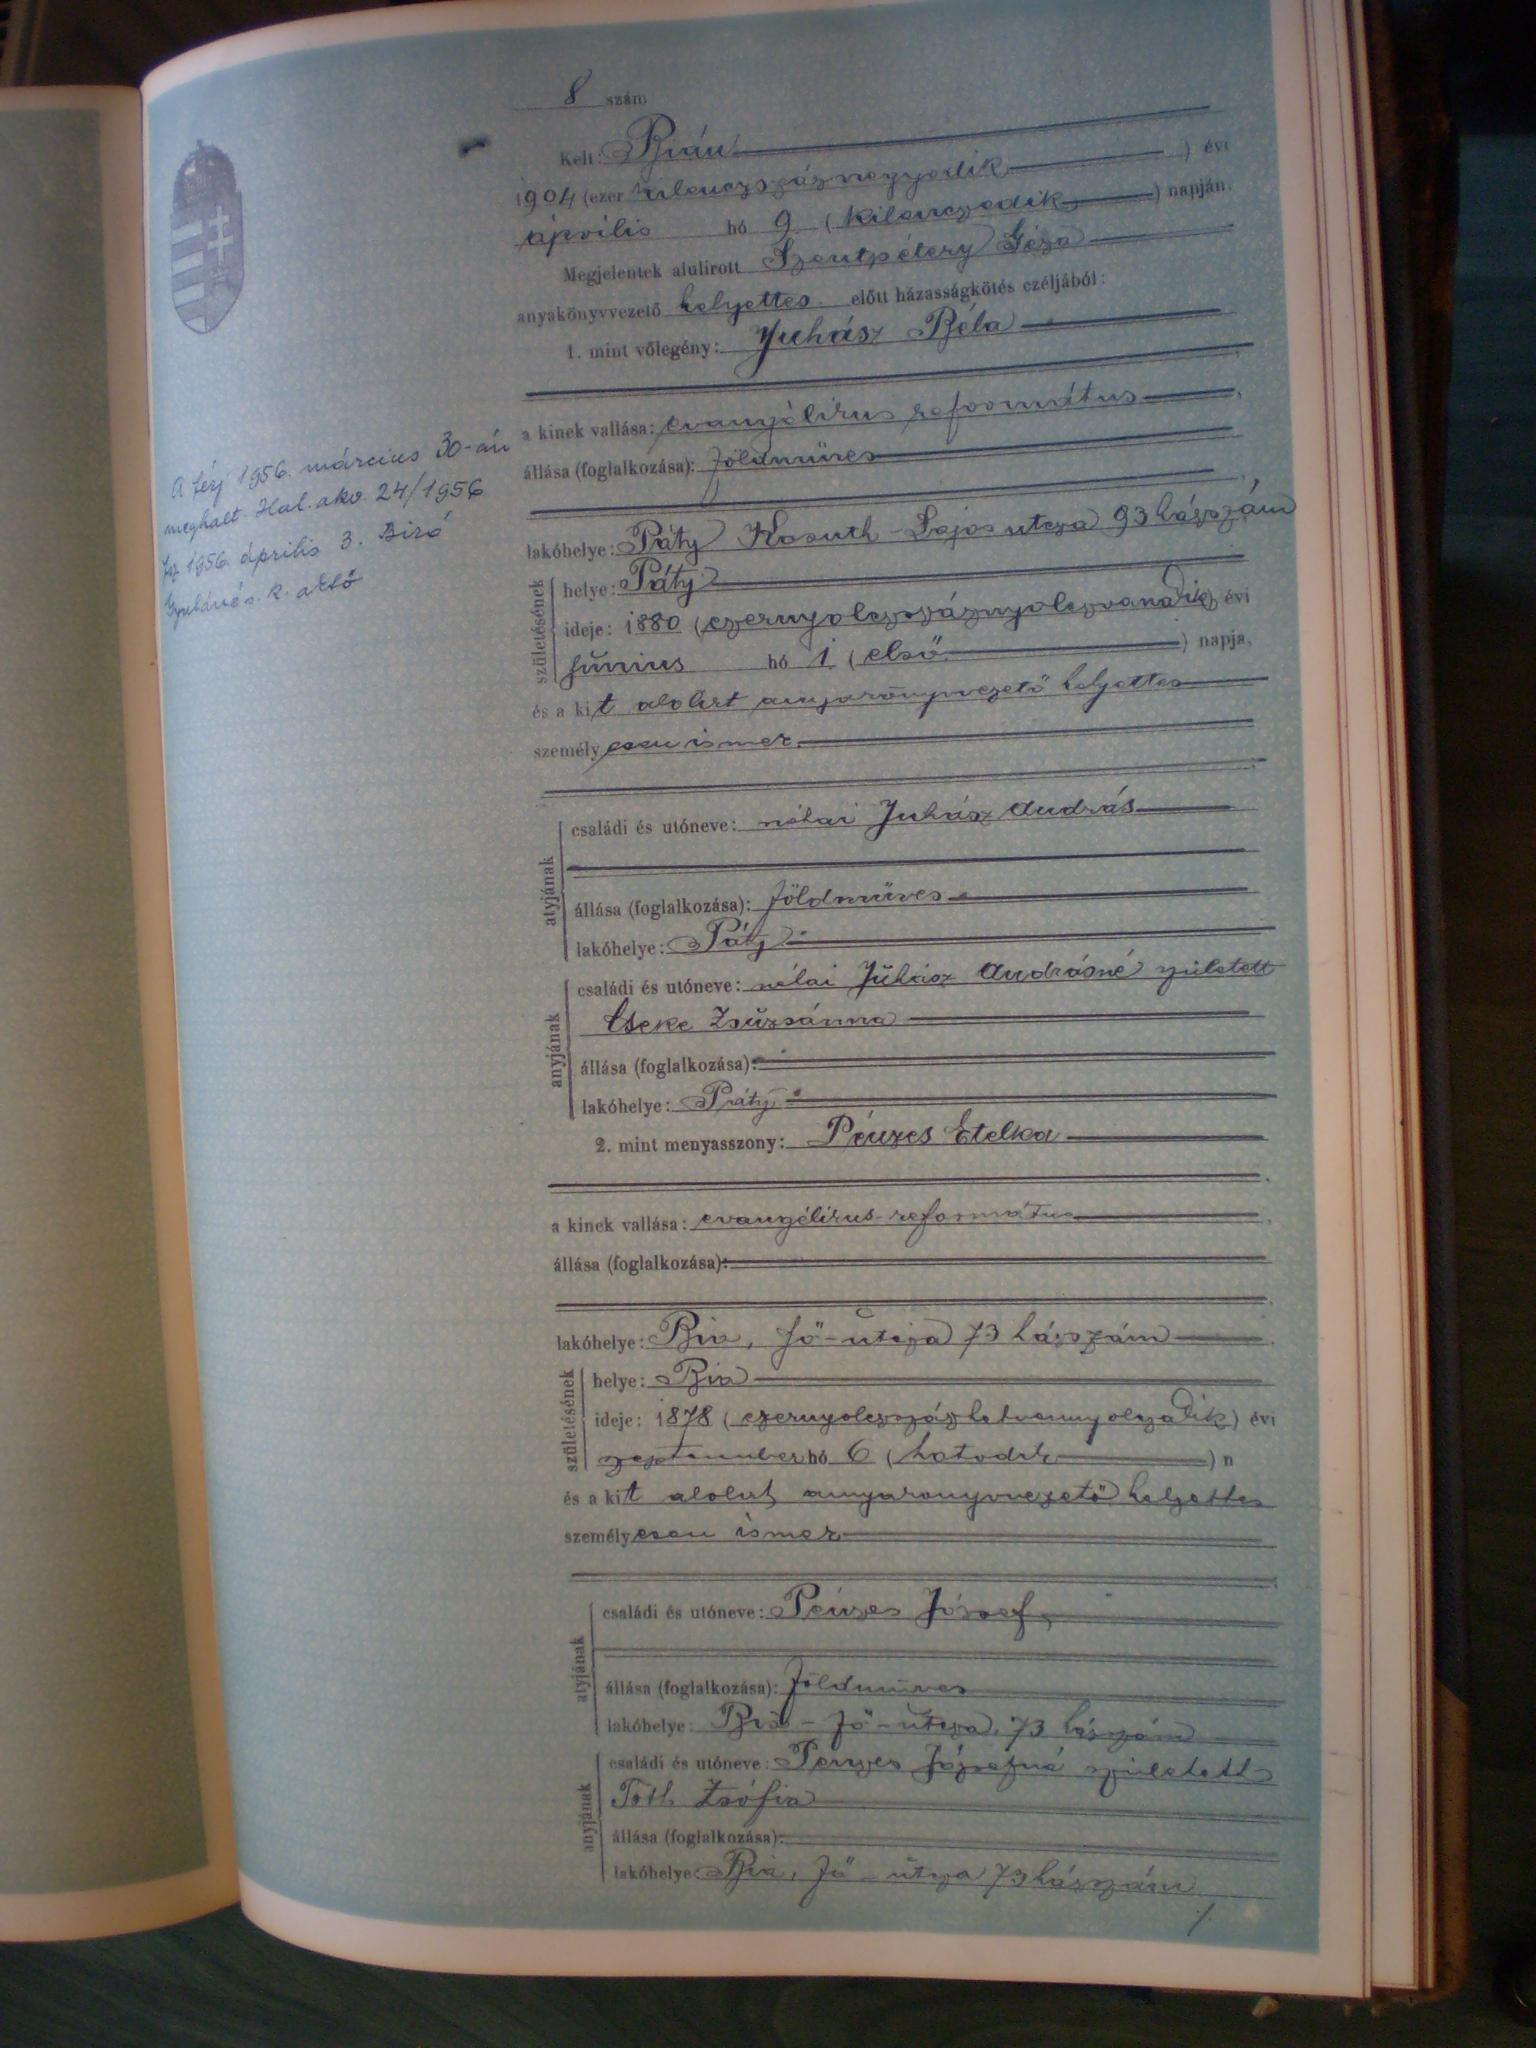 8 szám
Kelt: Bián
1904 (ezer kilenczszáznegyedik) évi
április hó 9 (kilenczedik) napján.
Megjelentek alulirott Szentpétery Géza
anyakönyvvezető helyettes előtt házasságkötés czéljából:
1. mint vőlegény: Juhász Béla
a kinek vallása: evangélikus református
állása (foglalkozása): földmüves
lakóhelye: Páty Kosuth-Lajos utcza 93 házszám
születésének
helye: Páty
ideje: 1880 (ezernyolczszáznyolczvanadik) évi
június hó 1 (első) napja,
és a kit alolirt anyakönyvvezető helyettes
személyesen ismer.
atyjának
családi és utóneve: néhai Juhász András
állása (foglalkozása): földmüves
lakóhelye: Páty
anyjának
családi és utóneve: néhai Juhász Andrásné született
Cseke Zsuzsánna
állása (foglalkozása):
lakóhelye: Páty
2. mint menyasszony: Pénzes Etelka
a kinek vallása: evangélikus-református
állása (foglalkozása):
lakóhelye: Bia, Fő-utcza 73 házszám
születésének
helye: Bia
ideje: 1878 (ezernyolczszázhetvennyolczadik) évi
szeptember hó 6 (hatodik) n
és a kit alolirt anyakönyvvezető helyettes
személyesen ismer
atyjának
családi és utóneve: Pénzes József,
állása (foglalkozása): földmüves
lakóhelye: Bia - Fő-utcza, 73 házszám
anyjának
családi és utóneve: Penzes Józsefné született
Tóth Zsófia
állása (foglalkozása):
lakóhelye: Bia, Fő-utcza 73 házszám
./.
A férj 1956. március 30-án
meghalt. Hal. akv. 24/1956
1956. április 3. Biró
Gyuláné s. k. aktő